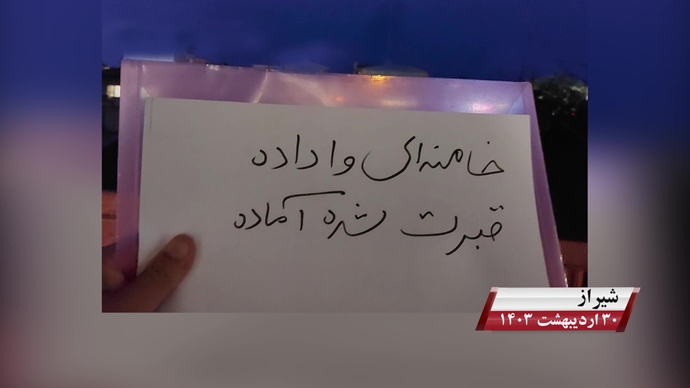 خامنه‌ای وا داده
قبرت شده آماده
شیراز
۳۰ اردیبهشت ۱۴۰۳